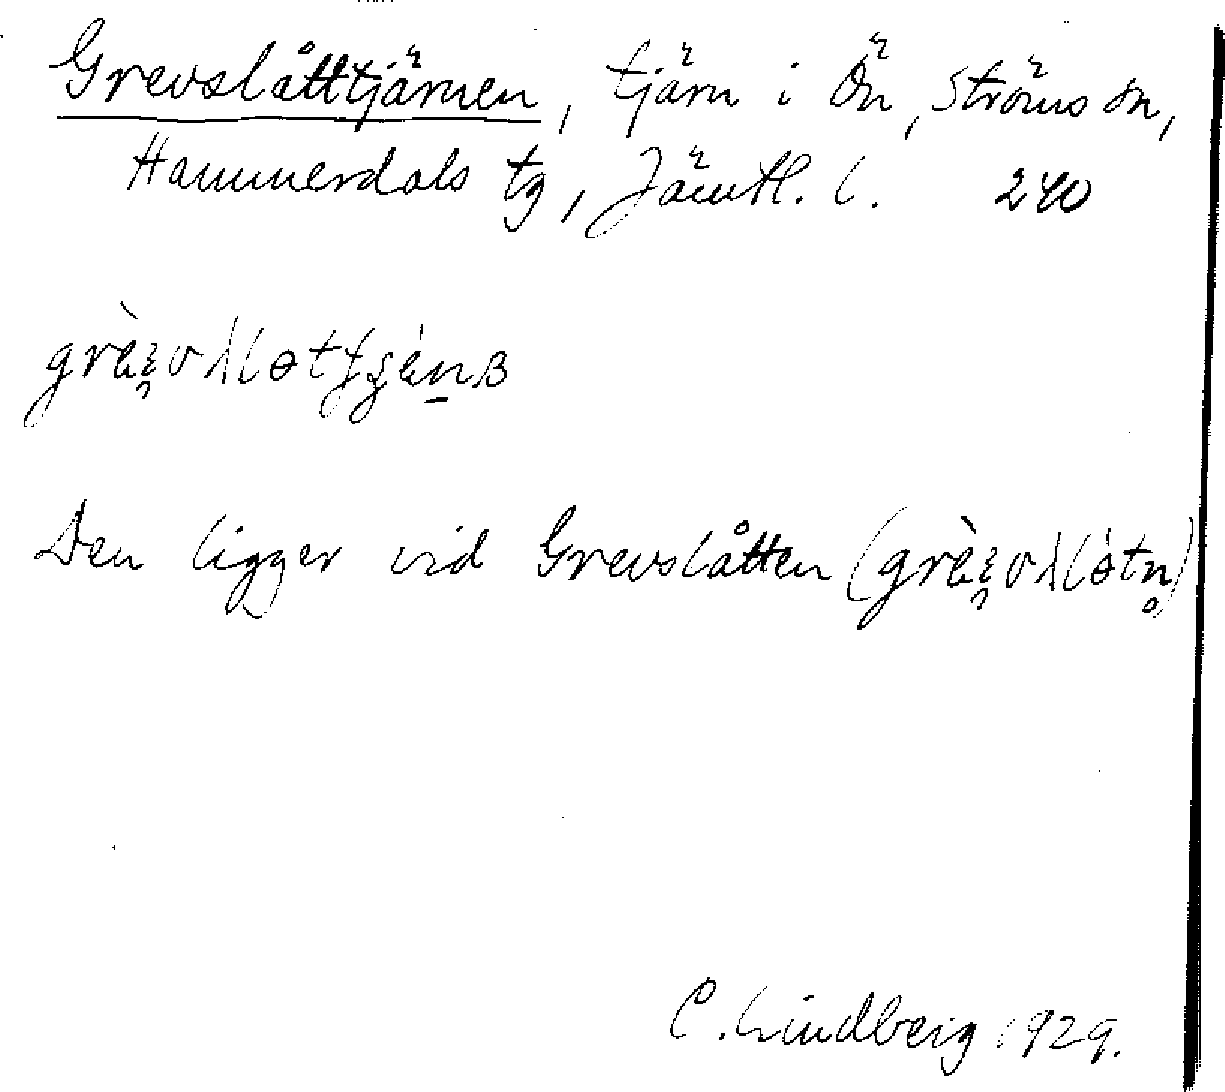 Grevslåttjärnen, tjärn i Ön, Ströms sn,
Hammerdals tg, Jämtl. l. 240
Den ligger vid Grevslåtten
C. Lindberg 1929.